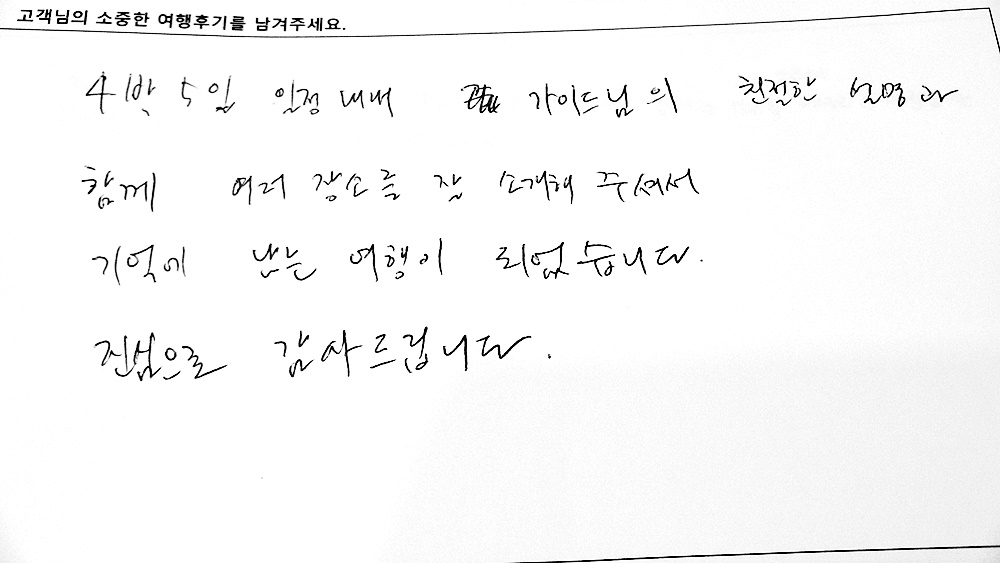 고객님의 소중한 여행후기를 남겨주세요.
4박 5일 일정 내내 가이드님의 친절한 설명과
함께 여러 장소를 잘 소개해 주셔서
기억에 남는 여행이 되었습니다.
진심으로 감사드립니다.